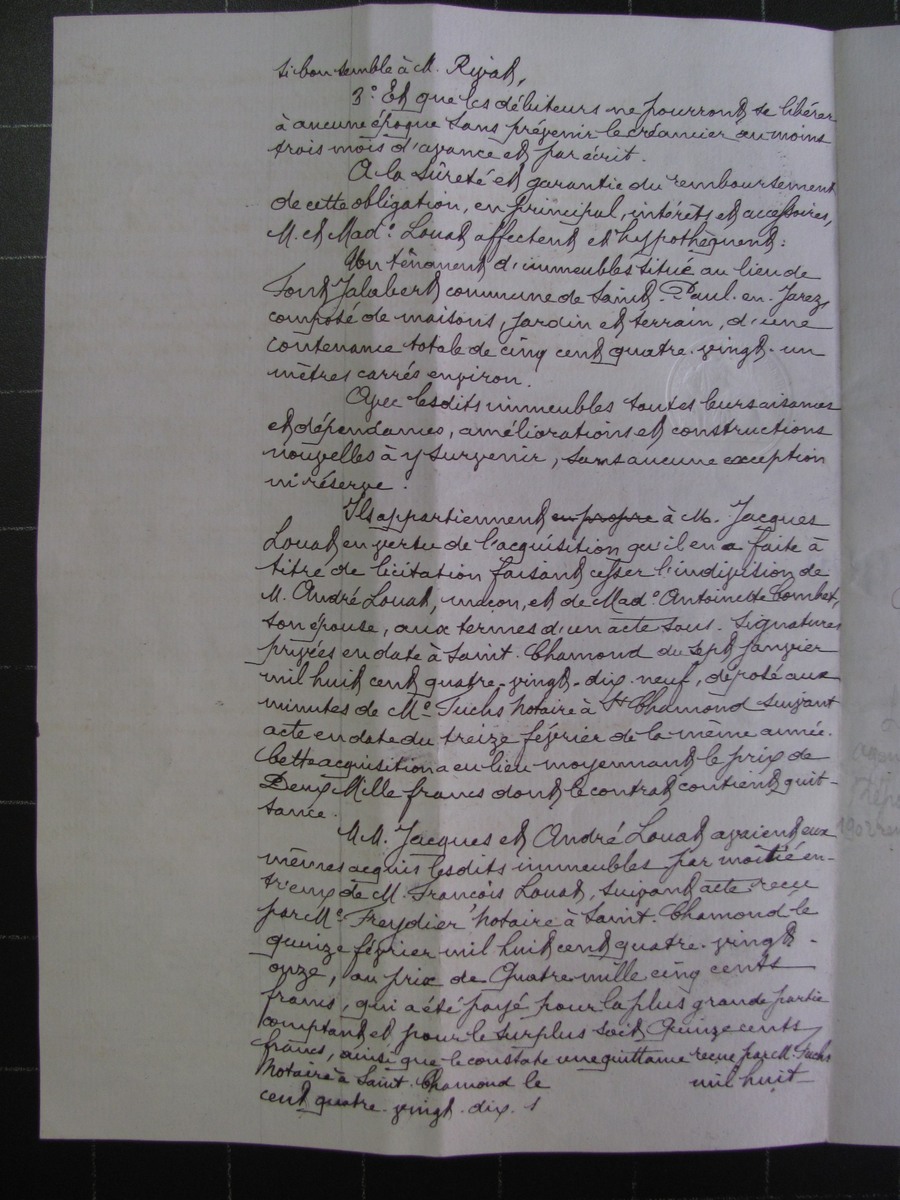 si bon semble à M. Rivat,
3° Et que les débiteurs ne pourront se libérer
à aucune époque sans prévenir le créancier au moins
trois mois d'avance et par écrit.
A la sûreté et garantie du remboursement
de cette obligation, en principal, intérêts et accessoires,
M. et Mad.e Louat affectent et hypothèquent :
Un tènement d'immeubles situé au lieu de
Font Jalabert commune de Saint-Paul-en-Jarez,
composé de maisons, jardin et terrain, d'une
contenance totale de cinq cent quatre-vingt-un
mètres carrés environ.
Avec lesdits immeubles toutes leurs aisances
et dépendances, améliorations et constructions
nouvelles à y survenir, sans aucune exception
ni réserve.
Ils appartiennent en propre à M. Jacques
Louat en vertu de l'acquisition qu'il en a faite à
titre de licitation faisant cesser l'indivision de
M. André Louat, maçon, et de Mad.e Antoinette Combet,
son épouse, aux termes d'un acte sous-signatures
privées en date à Saint-Chamond du sept janvier
mil huit cent quatre-vingt-dix-neuf, déposé aux
minutes de Me Fuchs notaire à St Chamond suivant
acte en date du treize février de la même année.
Cette acquisition a eu lieu moyennant le prix de
Deux Mille francs dont le contrat contient quit-
tance.
M.M. Jacques et André Louat avaient eux
mêmes acquis lesdits immeubles par moitié en-
tr'eux de M. François Louat, suivant acte reçu
par Me Freydier notaire à Saint-Chamond le
quinze février mil huit cent quatre-vingt-
onze, au prix de Quatre mille cinq cents
francs, qui a été payé pour la plus grande partie
comptant et pour le surplus soit Quinze cents
francs, ainsi que le constate une quittance reçue par Me Fuchs
Notaire à Saint-Chamond le mil huit
cent quatre-vingt-dix-